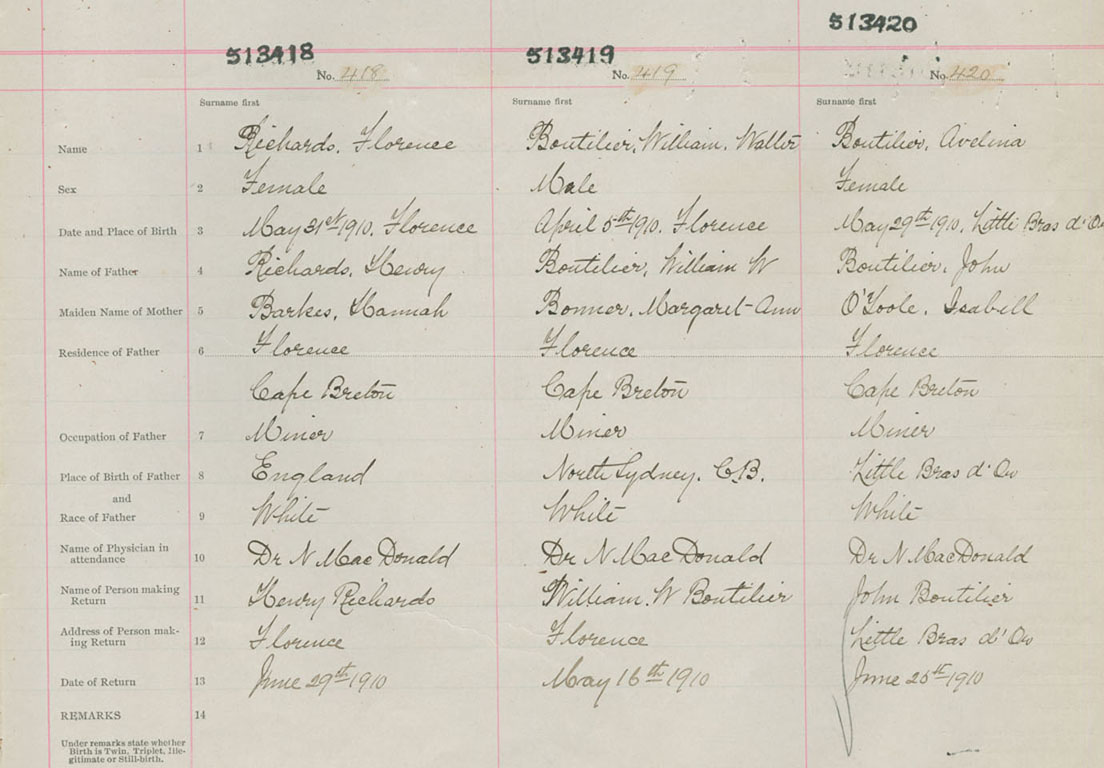 513418 513419 513420
No. 418 No. 419 No. 420
Surname first Surname first Surname first
Name 1 Richards, Florence Boutilier, William, Walter Boutilier, Avelina
Sex 2 Female Male Female
Date and Place of Birth 3 May 31st 1910, Florence April 5th 1910, Florence May 29th 1910, Little Bras d'Or
Name of Father 4 Richards, Henry Boutilier, William W Boutilier, John
Maiden Name of Mother 5 Barkes, Hannah Bonner, Margaret-Ann O'Toole, Isabell
Residence of Father 6 Florence Florence Florence
Cape Breton Cape Breton Cape Breton
Occupation of Father 7 Miner Miner Miner
Place of Birth of Father 8 England North Sydney, C.B. Little Bras d'Or
and
Race of Father 9 White White White
Name of Physician in
attendance 10 Dr N MacDonald Dr N MacDonald Dr N MacDonald
Name of Person making
Return 11 Henry Richards William. W Boutilier John Boutilier
Address of Person mak-
ing Return 12 Florence Florence Little Bras d'Or
Date of Return 13 June 29th 1910 May 16th 1910 June 25th 1910
REMARKS 14
Under remarks state whether
Birth is Twin, Triplet, Ille-
gitimate or Still-birth.